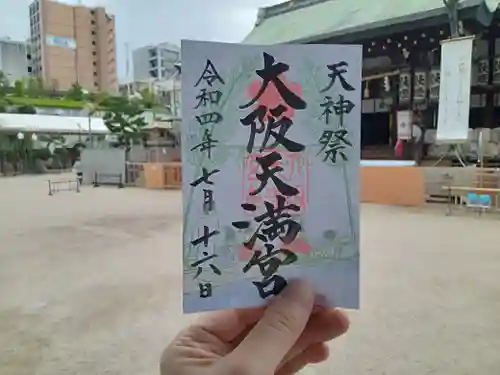 天神祭
大阪天満宮
令和四年七月十六日